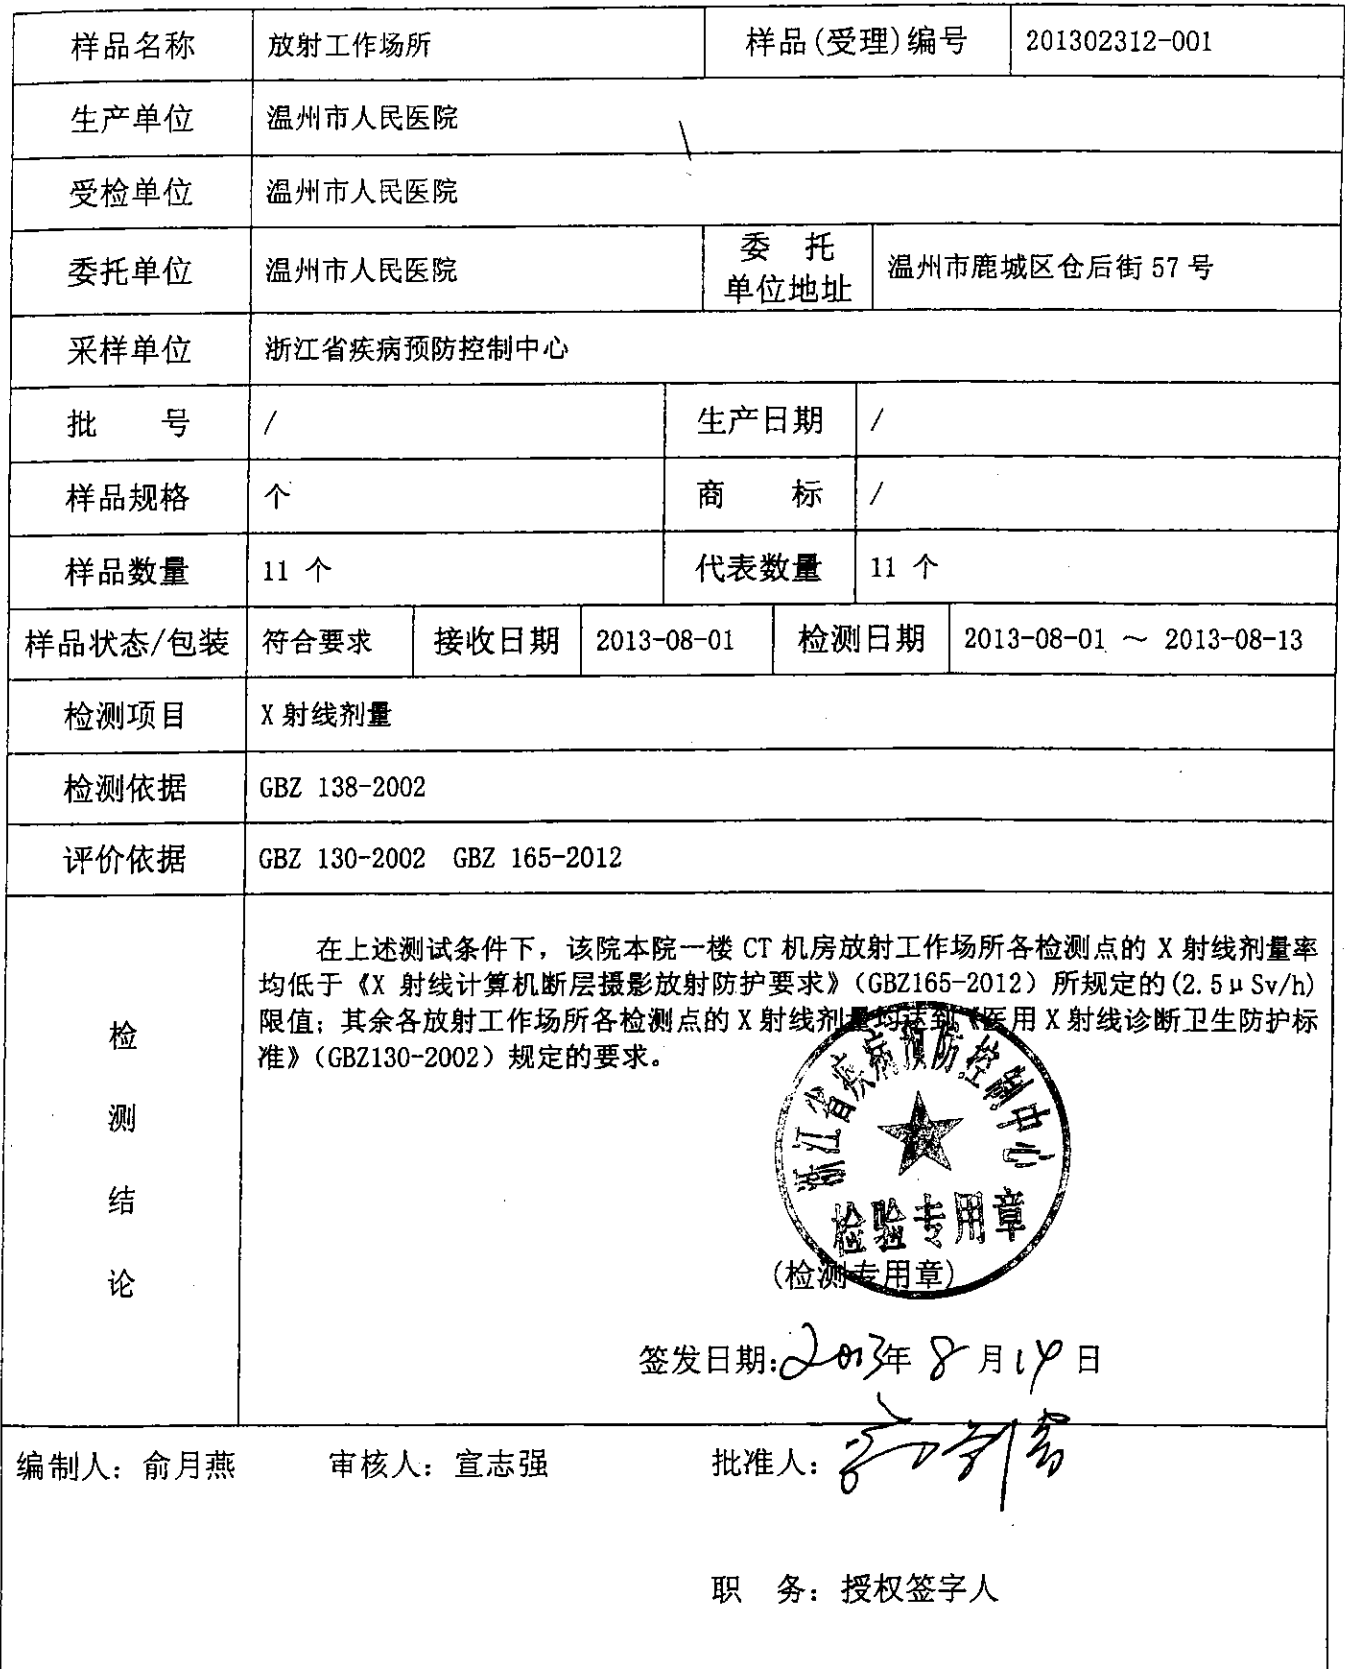 样品名称 放射工作场所 样品(受理)编号 201302312-001
生产单位 温州市人民医院
受检单位 温州市人民医院
委托单位 温州市人民医院 委 托 单位地址 温州市鹿城区仓后街 57 号
采样单位 浙江省疾病预防控制中心
批 号 / 生产日期 /
样品规格 个 商 标 /
样品数量 11 个 代表数量 11 个
样品状态/包装 符合要求 接收日期 2013-08-01 检测日期 2013-08-01 ～ 2013-08-13
检测项目 X 射线剂量
检测依据 GBZ 138-2002
评价依据 GBZ 130-2002 GBZ 165-2012
检测结论
在上述测试条件下，该院本院一楼 CT 机房放射工作场所各检测点的 X 射线剂量率
均低于《X 射线计算机断层摄影放射防护要求》（GBZ165-2012）所规定的(2.5μSv/h)
限值；其余各放射工作场所各检测点的 X 射线剂量均达到《医用 X 射线诊断卫生防护标
准》（GBZ130-2002）规定的要求。
浙江省疾病预防控制中心
检验专用章
(检测专用章)
签发日期:2013年 8 月14 日
编制人：俞月燕 审核人：宣志强 批准人：
职 务：授权签字人